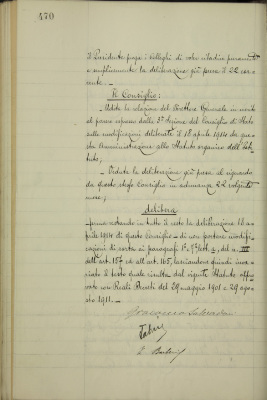 470
Il Presidente prega i colleghi di voler ribadire puramente
e semplicemente la deliberazione già presa il 22 cor-
rente. —
Il Consiglio:
— Udita la relazione del Direttore Generale in merito
al parere espresso dalla 3ª Sezione del Consiglio di Stato
sulle modificazioni deliberate il 18 aprile 1914 da que-
sta Amministrazione allo Statuto organico dell'Isti-
tuto;
— Veduta la deliberazione già presa al riguardo
da questo stesso Consiglio in adunanza 22 volgente
mese;
delibera
— ferma restando in tutto il resto la deliberazione 18 a-
prile 1914 di questo Consiglio — di non portare modifi-
cazioni di sorta ai paragrafi 1º, 9º dell'art. 9, del n. III
dell'art. 157 ed all'art. 165, lasciandone quindi inva-
riato il testo quale risulta dal vigente Statuto appro-
vato con Reali Decreti del 28 maggio 1901 e 29 ago-
sto 1911. —